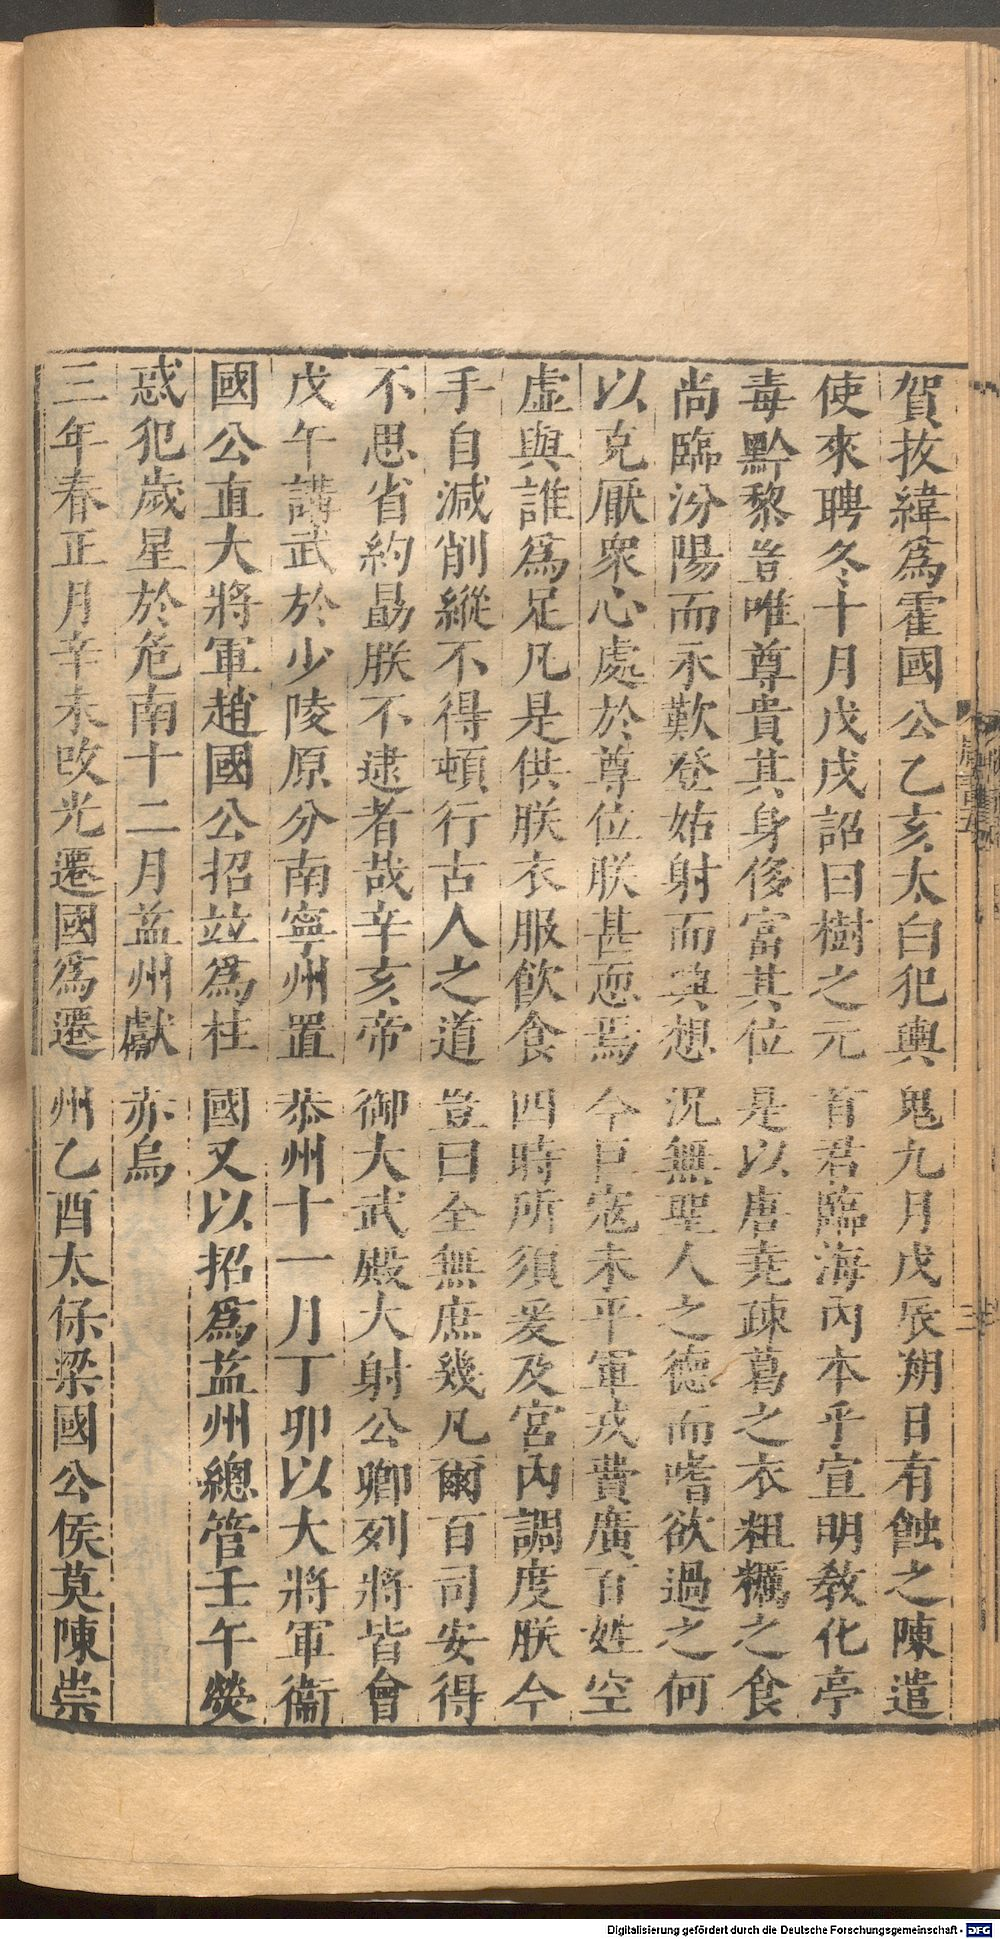 賀抜緯爲霍國公乙亥太白犯輿鬼九月戊辰朔日有蝕之陳遣
使來聘冬十月戊戌詔曰樹之元首君臨海內本乎宣明敎化亭
毒黔黎豈唯尊貴其身侈富其位是以唐堯疎葛之衣粗糲之食
尚臨汾陽而永歎登姑射而興想況無聖人之德而嗜欲過之何
以克厭衆心處於尊位朕甚恧焉今巨寇未平軍戎費廣百姓空
虛與誰爲足凡是供朕衣服飮食四時所須爰及宮內調度朕今
手自減削縱不得頓行古人之道豈曰全無庶幾凡爾百司安得
不思省約勗朕不逮者哉辛亥帝御大武殿大射公卿列將皆會
戊午講武於少陵原分南寧州置恭州十一月丁卯以大將軍衞
國公直大將軍趙國公招竝爲柱國又以招爲益州總管壬午熒
惑犯歲星於危南十二月益州獻赤烏
三年春正月辛未攺光遷國爲遷州乙酉太保梁國公侯莫陳崇
Digitalisierung gefördert durch die Deutsche Forschungsgemeinschaft - DFG